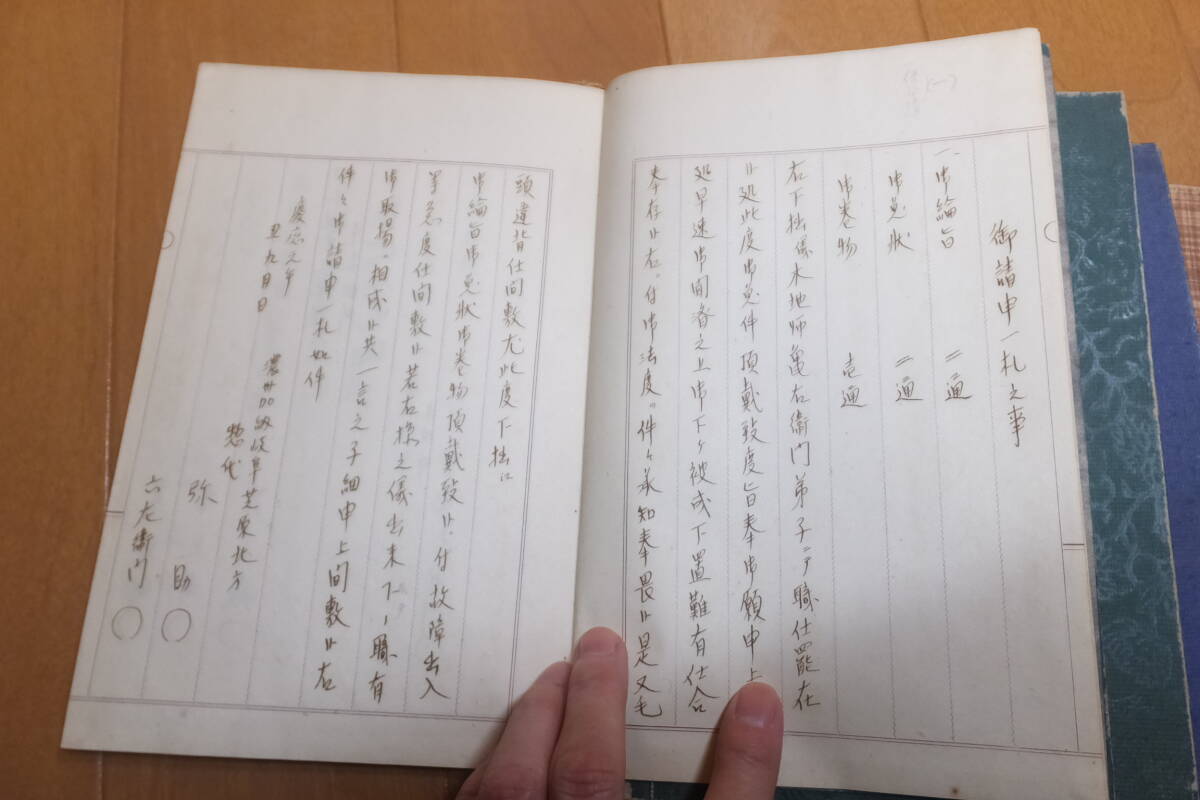 御請申一札之事
一、御綸旨 二通
御免状 二通
御巻物 壱通
右下拙儀木地師亀右衛門弟子ニテ職仕罷在
候処此度御免件頂戴致度旨奉御願申上
処早速御聞済之上御下ケ被成下置難有仕合
奉存候右ニ付御法度の件々承知奉畏候是又毛
頭違背仕間敷尤此度下拙江
御綸旨御免状御巻物頂戴致候ニ付故障出入
等急度仕間敷候若右様之儀出来
御取揚ニ相成候共一言之子細申上間敷候右
件々御請申一札如件
慶応元年
丑九月日
濃州加
岐阜芝原北方
惣代
弥助 〇
六左衛門 〇